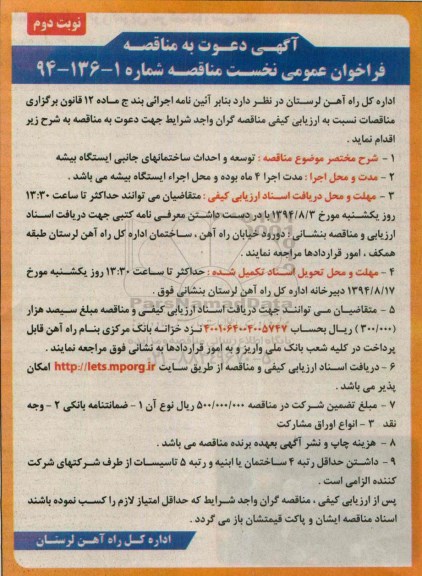 نوبت دوم
آگهی دعوت به مناقصه
فراخوان عمومی نخست مناقصه شماره ۱-۱۳۶-۹۴
اداره کل راه آهن لرستان در نظر دارد بنابر آئین نامه اجرائی بند ج ماده ۱۲ قانون برگزاری
مناقصات نسبت به ارزیابی کیفی مناقصه گران واجد شرایط جهت دعوت به مناقصه به شرح زیر
اقدام نماید .
۱ - شرح مختصر موضوع مناقصه : توسعه و احداث ساختمانهای جانبی ایستگاه بیشه
۲ - مدت و محل اجرا : مدت اجرا ۴ ماه بوده و محل اجراء ایستگاه بیشه می باشد .
۳ - مهلت و محل دریافت اسناد ارزیابی کیفی : متقاضیان می توانند حداکثر تا ساعت ۱۳:۳۰
روز یکشنبه مورخ ۱۳۹۴/۸/۳ با در دست داشتن معرفی نامه کتبی جهت دریافت اسناد
ارزیابی و مناقصه بنشانی : دورود خیابان راه آهن ، ساختمان اداره کل راه آهن لرستان طبقه
همکف ، امور قراردادها مراجعه نمایند .
۴ - مهلت و محل تحویل اسناد تکمیل شده : حداکثر تا ساعت ۱۳:۳۰ روز یکشنبه مورخ
۱۳۹۴/۸/۱۷ دبیرخانه اداره کل راه آهن لرستان بنشانی فوق .
۵ - متقاضیان می توانند جهت دریافت اسناد ارزیابی کیفی و مناقصه مبلغ سیصد هزار
(۳۰۰/۰۰۰) ریال بحساب ۴۰۰۱۰۶۴۰۰۴۰۰۵۷۴۷ نزد خزانه بانک مرکزی بنام راه آهن قابل
پرداخت در کلیه شعب بانک ملی واریز و به امور قراردادها به نشانی فوق مراجعه نمایند .
۶ - دریافت اسناد ارزیابی کیفی و مناقصه از طریق سایت http://iets.mporg.ir امکان
پذیر می باشد .
۷ - مبلغ تضمین شرکت در مناقصه ۵۰۰/۰۰۰/۰۰۰ ریال نوع آن ۱ - ضمانتنامه بانکی ۲ - وجه
نقد ۳ - انواع اوراق مشارکت
۸ - هزینه چاپ و نشر آگهی بعهده برنده مناقصه می باشد .
۹ - داشتن حداقل رتبه ۴ ساختمان یا ابنیه و رتبه ۵ تاسیسات از طرف شرکتهای شرکت
کننده الزامی است .
پس از ارزیابی کیفی ، مناقصه گران واجد شرایط که حداقل امتیاز لازم را کسب نموده باشند
اسناد مناقصه ایشان و پاکت قیمتشان باز می گردد .
اداره کل راه آهن لرستان